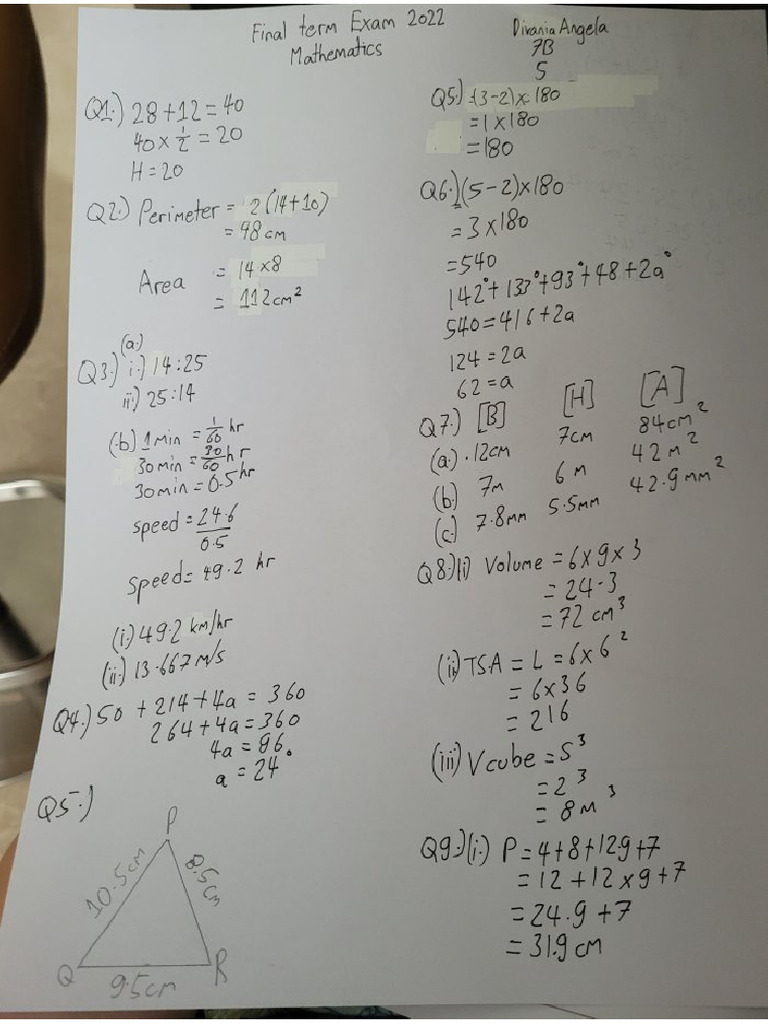 Final term Exam 2022
Mathematics
Divania Angela
7B
5
Q1.) 28 + 12 = 40
40 x 1/2 = 20
H = 20
Q2.) Perimeter = 2(14+10)
= 48 cm
Area = 14 x 8
= 112 cm²
Q3.) (a.) i.) 14 : 25
ii.) 25 : 14
(b.) 1 min = 1/60 hr
30 min = 30/60 hr
30 min = 0.5 hr
speed = 24.6/0.5
speed = 49.2 hr
(i.) 49.2 km/hr
(ii.) 13.667 m/s
Q4.) 50 + 214 + 4a = 360
264 + 4a = 360
4a = 96.
a = 24
Q5.)
P
10.5cm
8.5cm
Q
R
9.5cm
Q5.) =(3-2) x 180
= 1 x 180
= 180
Q6.) (5-2) x 180
= 3 x 180
= 540
142° + 133° + 93° + 48 + 2a°
540 = 416 + 2a
124 = 2a
62 = a
Q7.) [B] [H] [A]
(a.) . 12cm 7cm 84cm²
(b) 7m 6 m 42 m²
(c) 7.8mm 5.5mm 42.9 mm²
Q8.) (i) Volume = 6 x 9 x 3
= 24.3
= 72 cm³
(ii) TSA = L = 6 x 6²
= 6 x 36
= 216
(iii) V cube = S³
= 2³
= 8 m³
Q9.) (i.) P = 4 + 8 + 12.9 + 7
= 12 + 12 x 9 + 7
= 24.9 + 7
= 31.9 cm